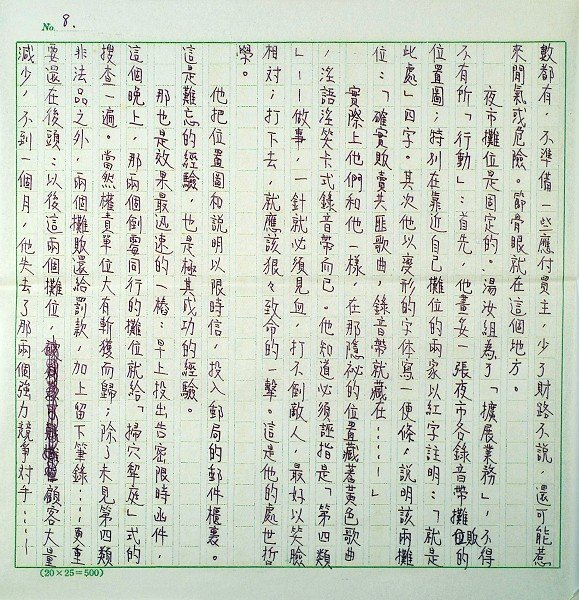 No. 8.
數都有，不準備一些應付買主，少了財路不說，還可能惹
來閒氣或危險。節骨眼就在這個地方。
夜市攤位是固定的。湯汝組為了「擴展業務」，不得
不有所「行動」：首先，他畫妥一張夜市各錄音帶攤位的
位置圖；特別在靠近自己攤位的兩家以紅字註明：「就是
此處」四字。其次他以變形的字体寫一便條，說明該兩攤
位：「確實敗賣共匪歌曲，錄音帶就藏在……」
實際上他們和他一樣，在那隱祕的位置藏著黃色歌曲
，淫語淫笑卡式錄音帶而已。他知道必須誣指是「第四類
」——做事，一針就必須見血，打不倒敵人，最好以笑臉
相對；打下去，就應該狠々致命的一擊。這是他的處世哲
學。
他把位置圖和說明以限時信，投入郵局的郵件櫃裏。
這是難忘的經驗，也是極其成功的經驗。
那也是效果最迅速的一樁：早上投出告密限時函件，
這個晚上，那兩個倒霉同行的攤位就給「掃穴犂庭」式的
搜查一遍。當然權責單位大有斬獲而歸；除了未見第四類
非法品之外，兩個攤敗還給罰款，加上留下筆錄……更重
要還在後頭：以後這兩個攤位，顧客大量
減少，不到一個月，他失去了那兩個強力競爭对手……
(20×25=500)